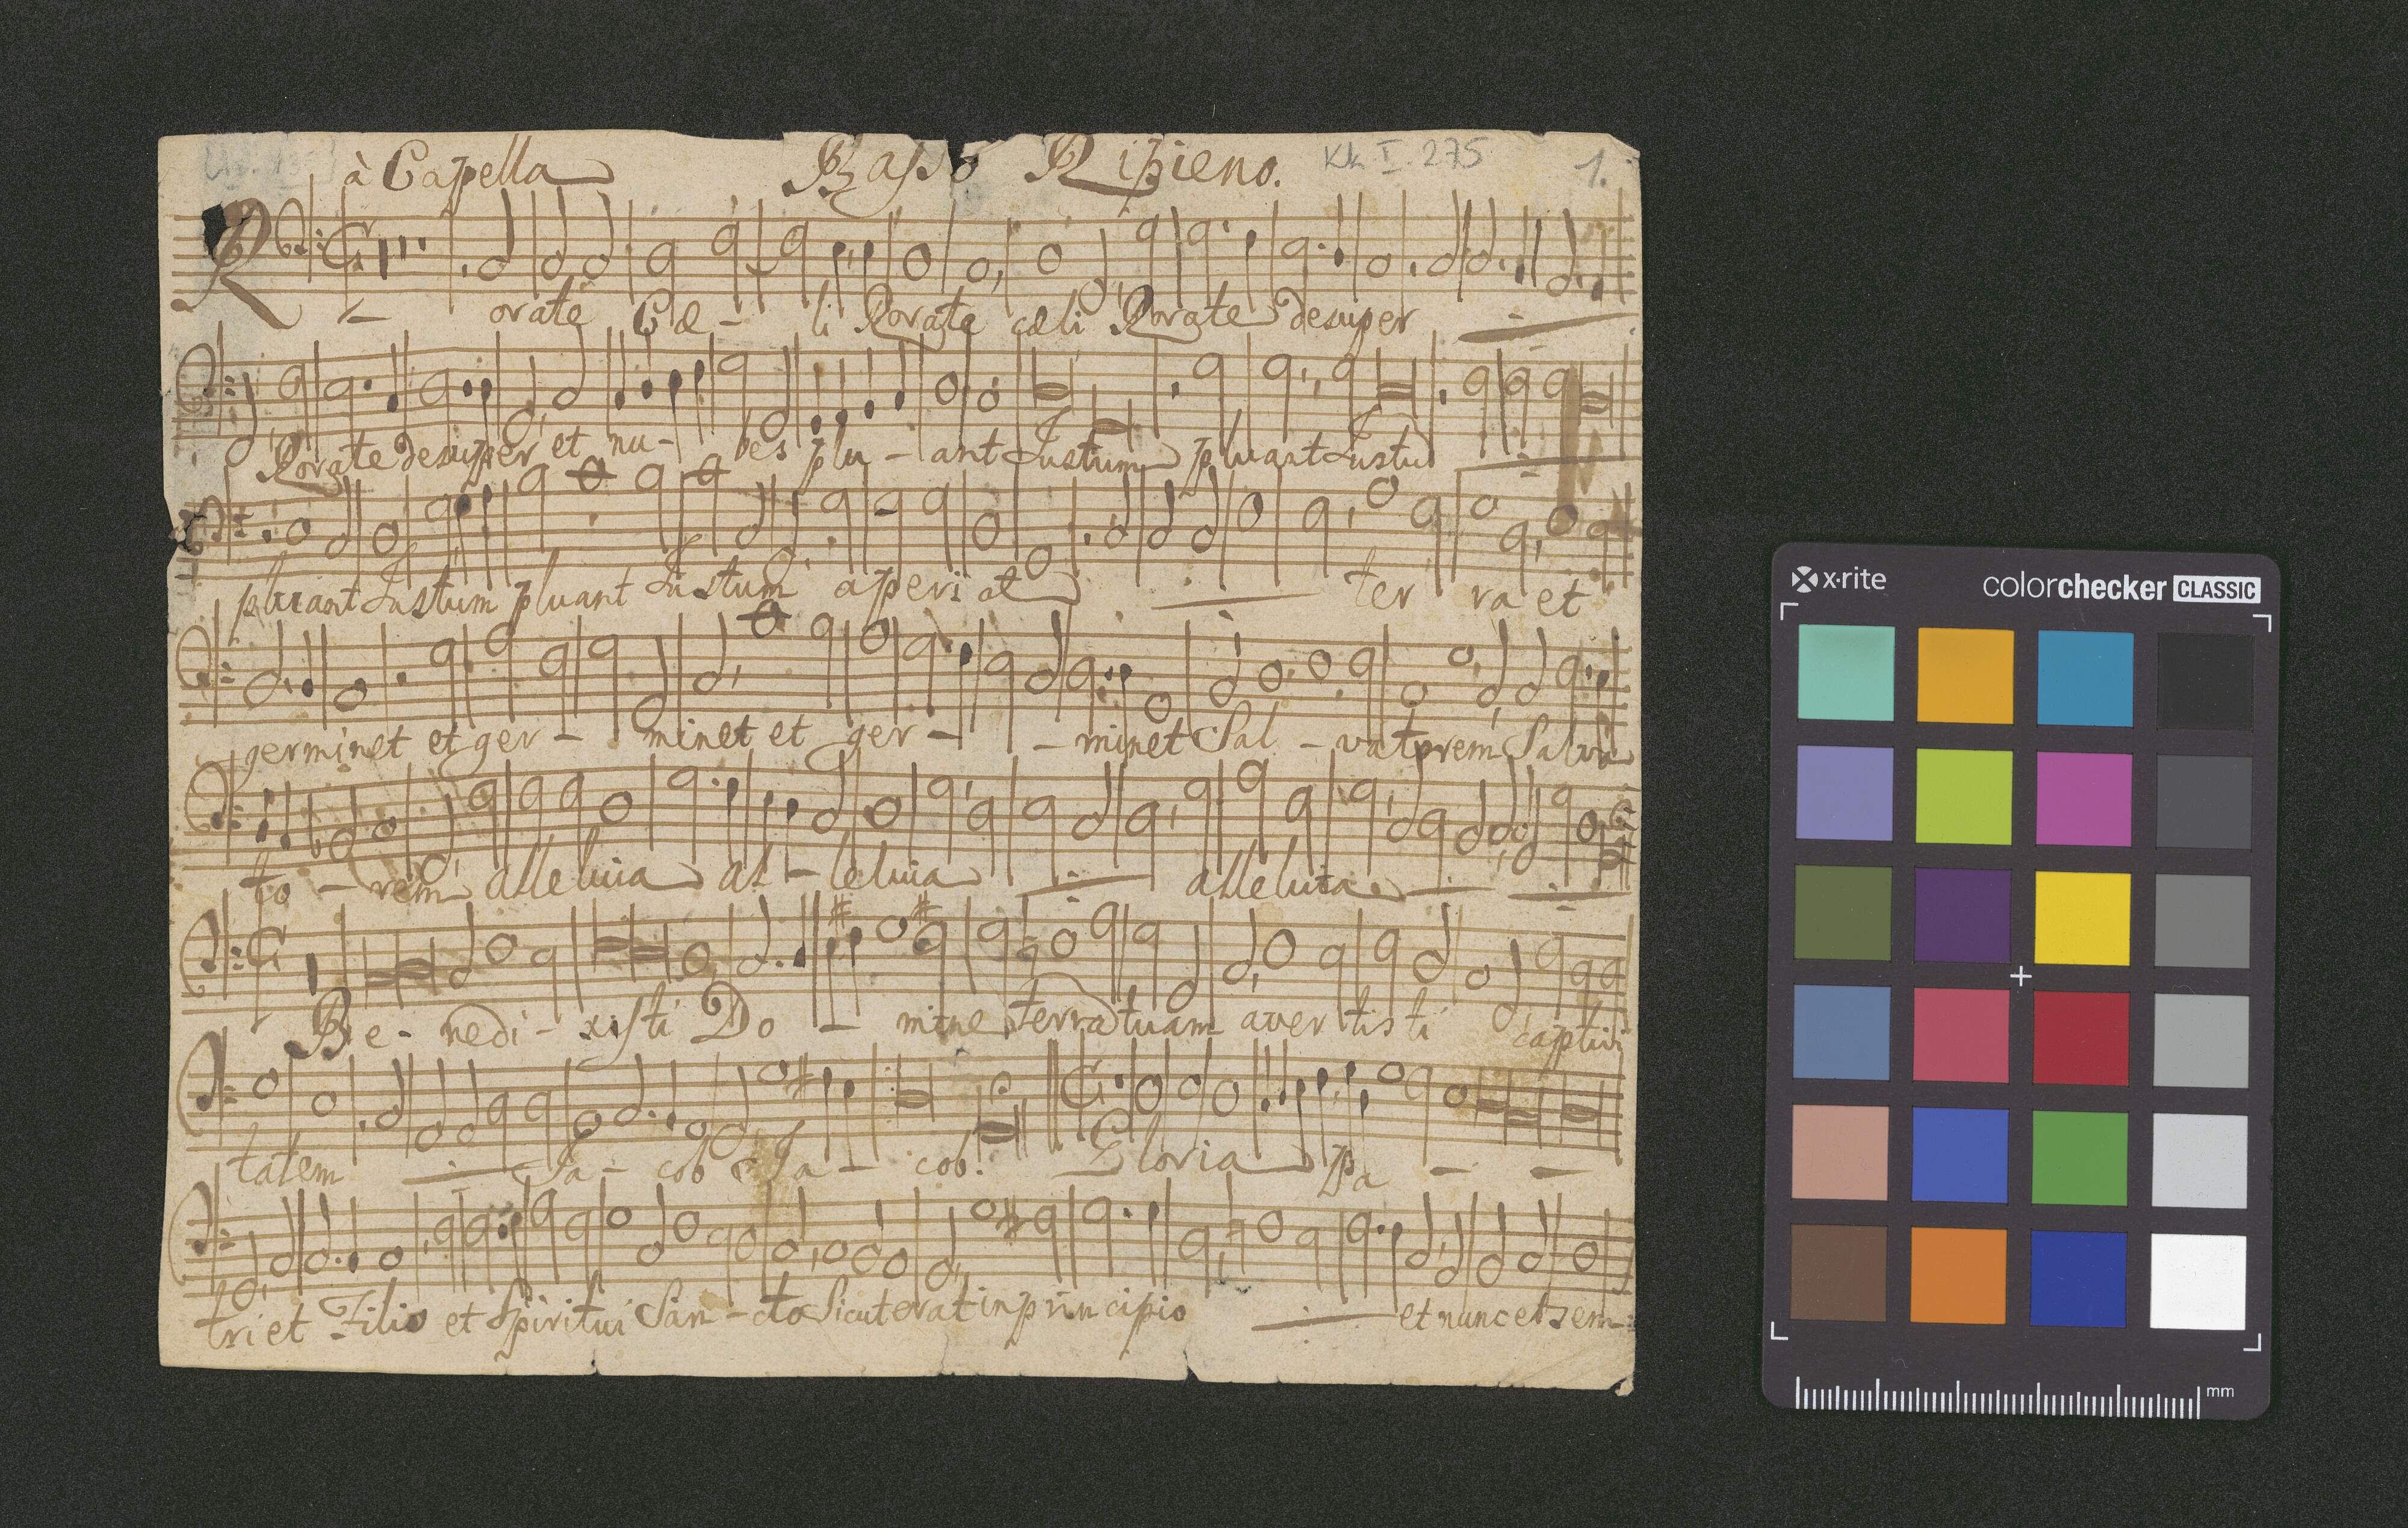 à Capella Basso Ripieno. Kk I. 275 1.
Rorate Cæ - li Rorate cæli Rorate desuper
Rorate desuper et nu - bes plu - ant Justum pluant Justū
pluant Justum pluant Justum aperiat ter ra et
germinet et ger - minet et ger - - minet Sal - vatorem Salva
to - rem alleluia al - leluia alleluia
Be - nedi - xisti Do - mine terra tuam avertisti captivi
tatem Ja - cob Ja - cob. Gloria Pa - -
tri et Filio et Spiritui San - cto Sicut erat in principio et nunc et sem
x·rite colorchecker CLASSIC
mm